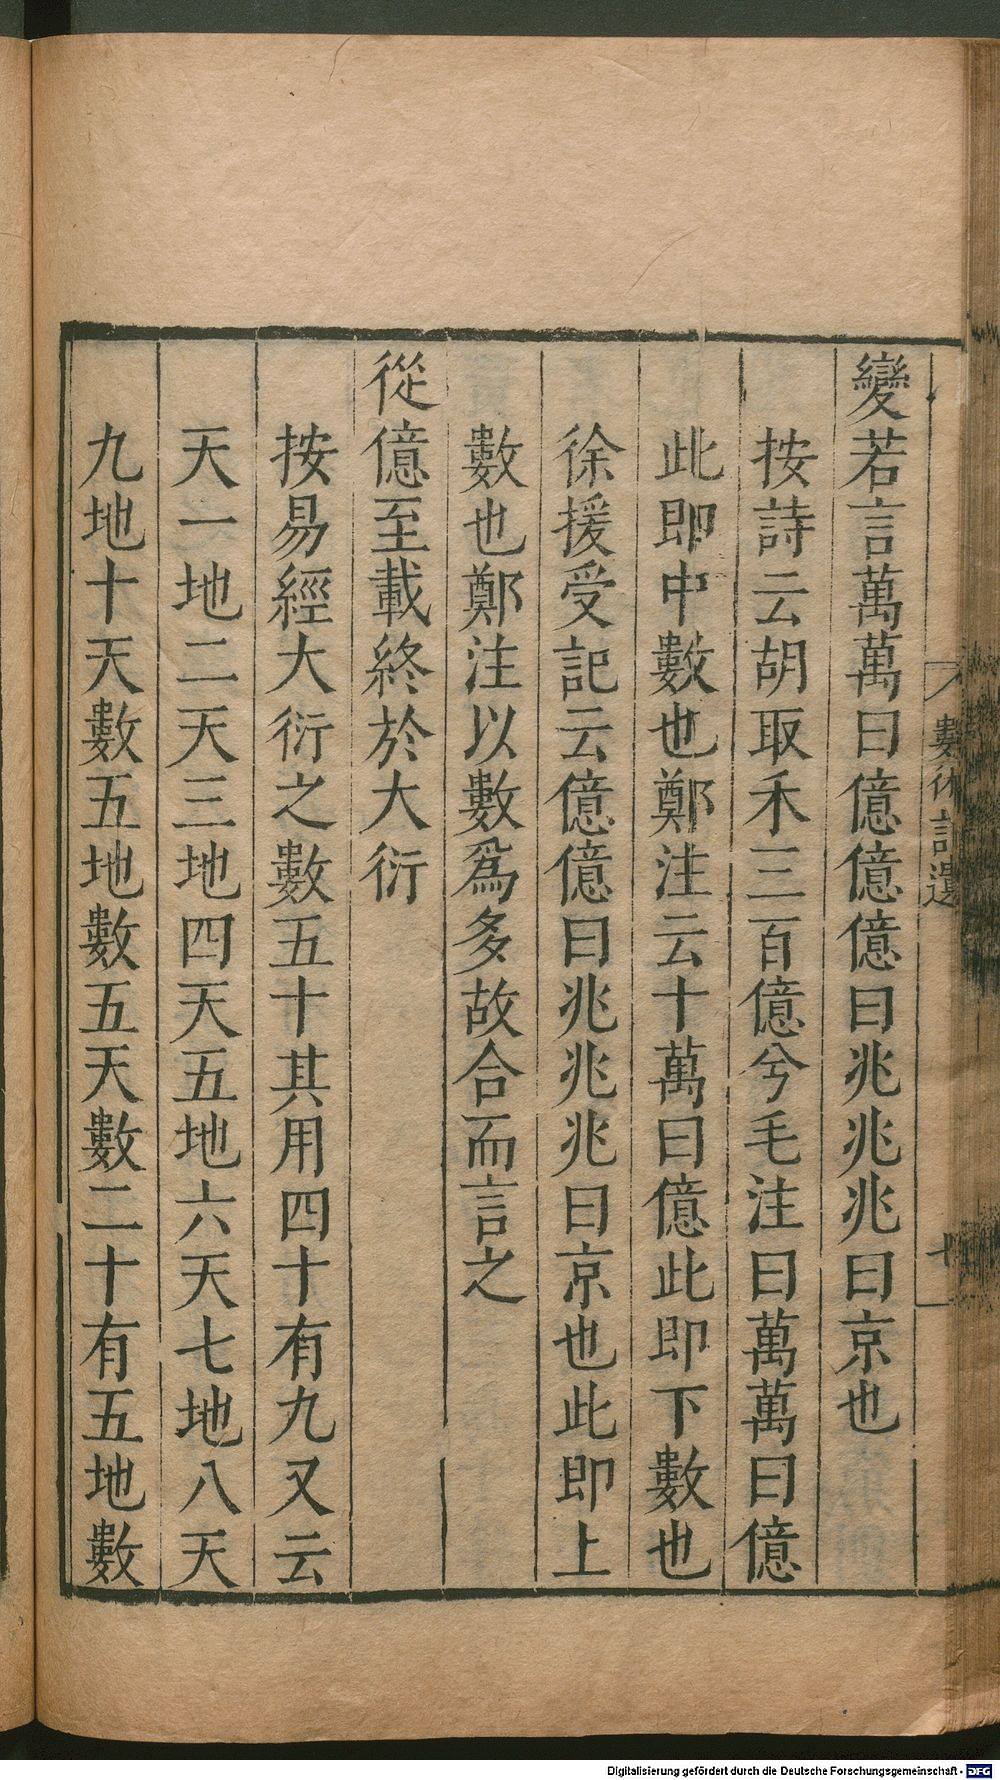 變若言萬萬曰億億億曰兆兆兆曰京也
按詩云胡取禾三百億兮毛注曰萬萬曰億
此即中數也鄭注云十萬曰億此即下數也
徐援受記云億億曰兆兆兆曰京也此即上
數也鄭注以數爲多故合而言之
從億至載終於大衍
按易經大衍之數五十其用四十有九又云
天一地二天三地四天五地六天七地八天
九地十天數五地數五天數二十有五地數
數術記遺
Digitalisierung gefördert durch die Deutsche Forschungsgemeinschaft - DFG